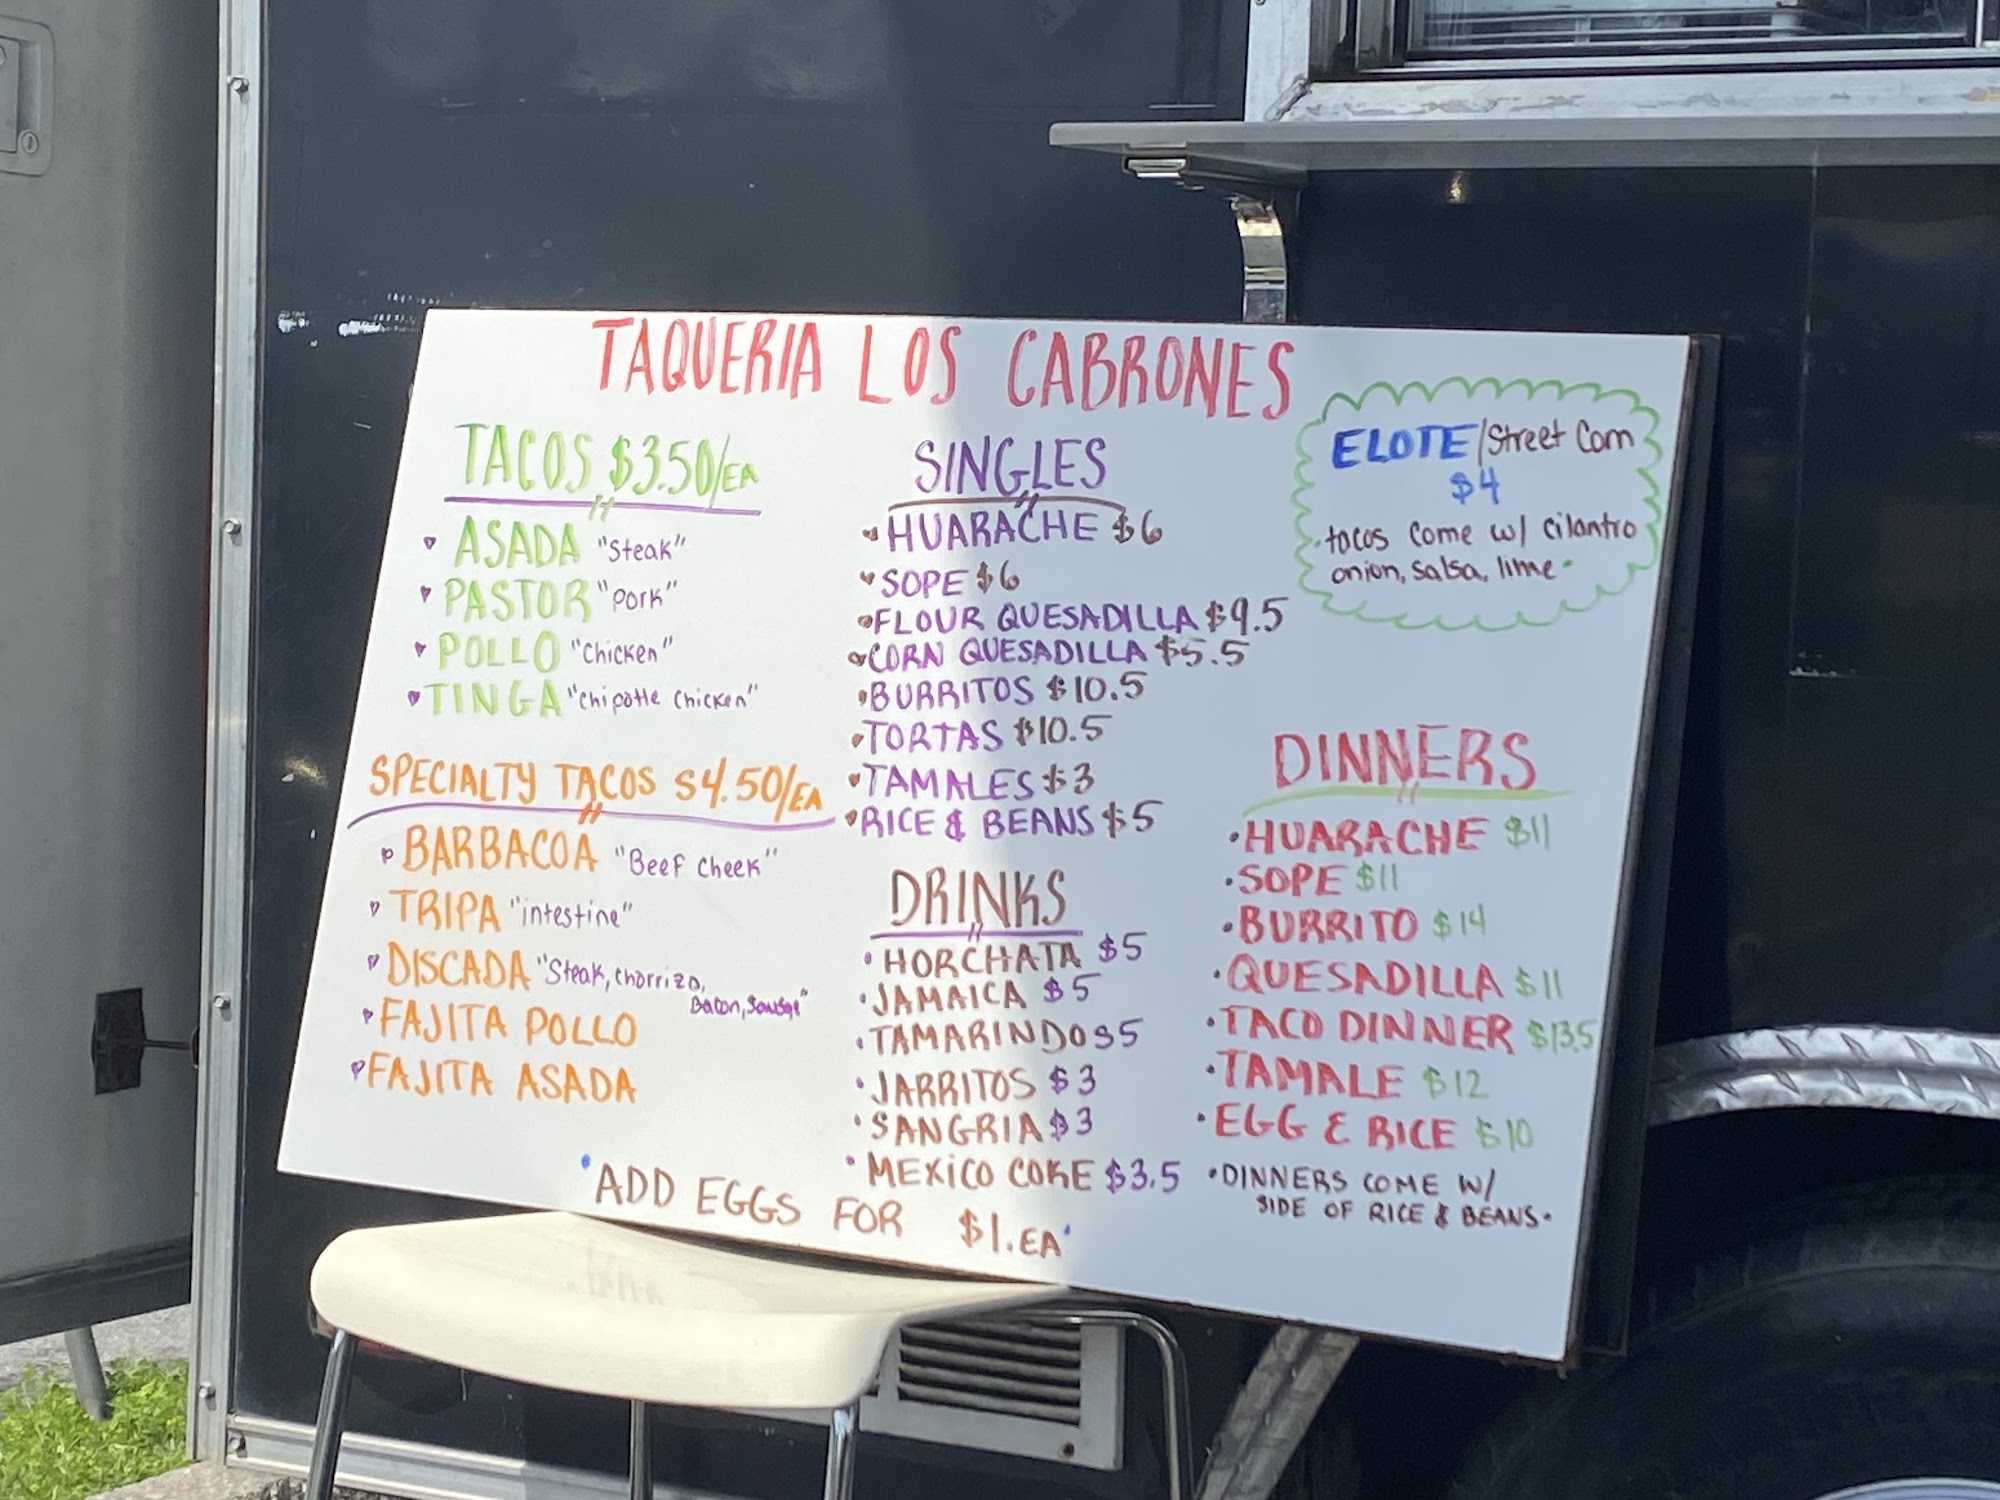 TAQUERIA LOS CABRONES
TACOS $3.50/EA
ASADA "Steak"
PASTOR "pork"
POLLO "Chicken"
TINGA "chipotle chicken"
SPECIALTY TACOS $4.50/EA
BARBACOA "Beef cheek"
TRIPA "intestine"
DISCADA "Steak, chorrizo,
Bacon,
FAJITA POLLO
FAJITA ASADA
ADD EGGS FOR $1.EA
SINGLES
HUARACHE $6
SOPE $6
FLOUR QUESADILLA $9.5
CORN QUESADILLA $5.5
BURRITOS $10.5
TORTAS $10.5
TAMALES $3
RICE & BEANS $5
DRINKS
HORCHATA $5
JAMAICA $5
TAMARINDO $5
JARRITOS $3
SANGRIA $3
MEXICO COKE $3.5
ELOTE/Street Corn
$4
tacos come w/ cilantro
onion, salsa, lime
DINNERS
HUARACHE $11
SOPE $11
BURRITO $14
QUESADILLA $11
TACO DINNER $13.5
TAMALE $12
EGG & RICE $10
DINNERS COME W/
SIDE OF RICE & BEANS